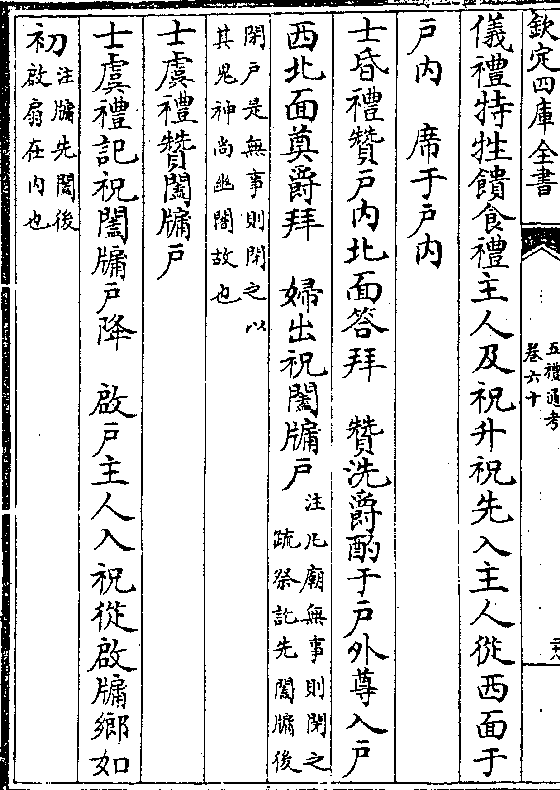 欽定四庫全書
五禮通考
卷六十
儀禮特牲饋食禮主人及祝升祝先入主人從西面于
戶内　席于戶内
士昏禮贊戶内北面答拜　贊洗爵酌于戶外尊入戶
西北面奠爵拜　婦出祝闔牖戶
注凡廟無事則閉之
疏祭訖先闔牖後
閉戶是無事則閉之以
其鬼神尚幽闇故也
士虞禮贊闔牖戶
士虞禮記祝闔牖戶降　啟戶主人入祝從啟牖鄉如
初
注牖先闔後
啟扇在内也